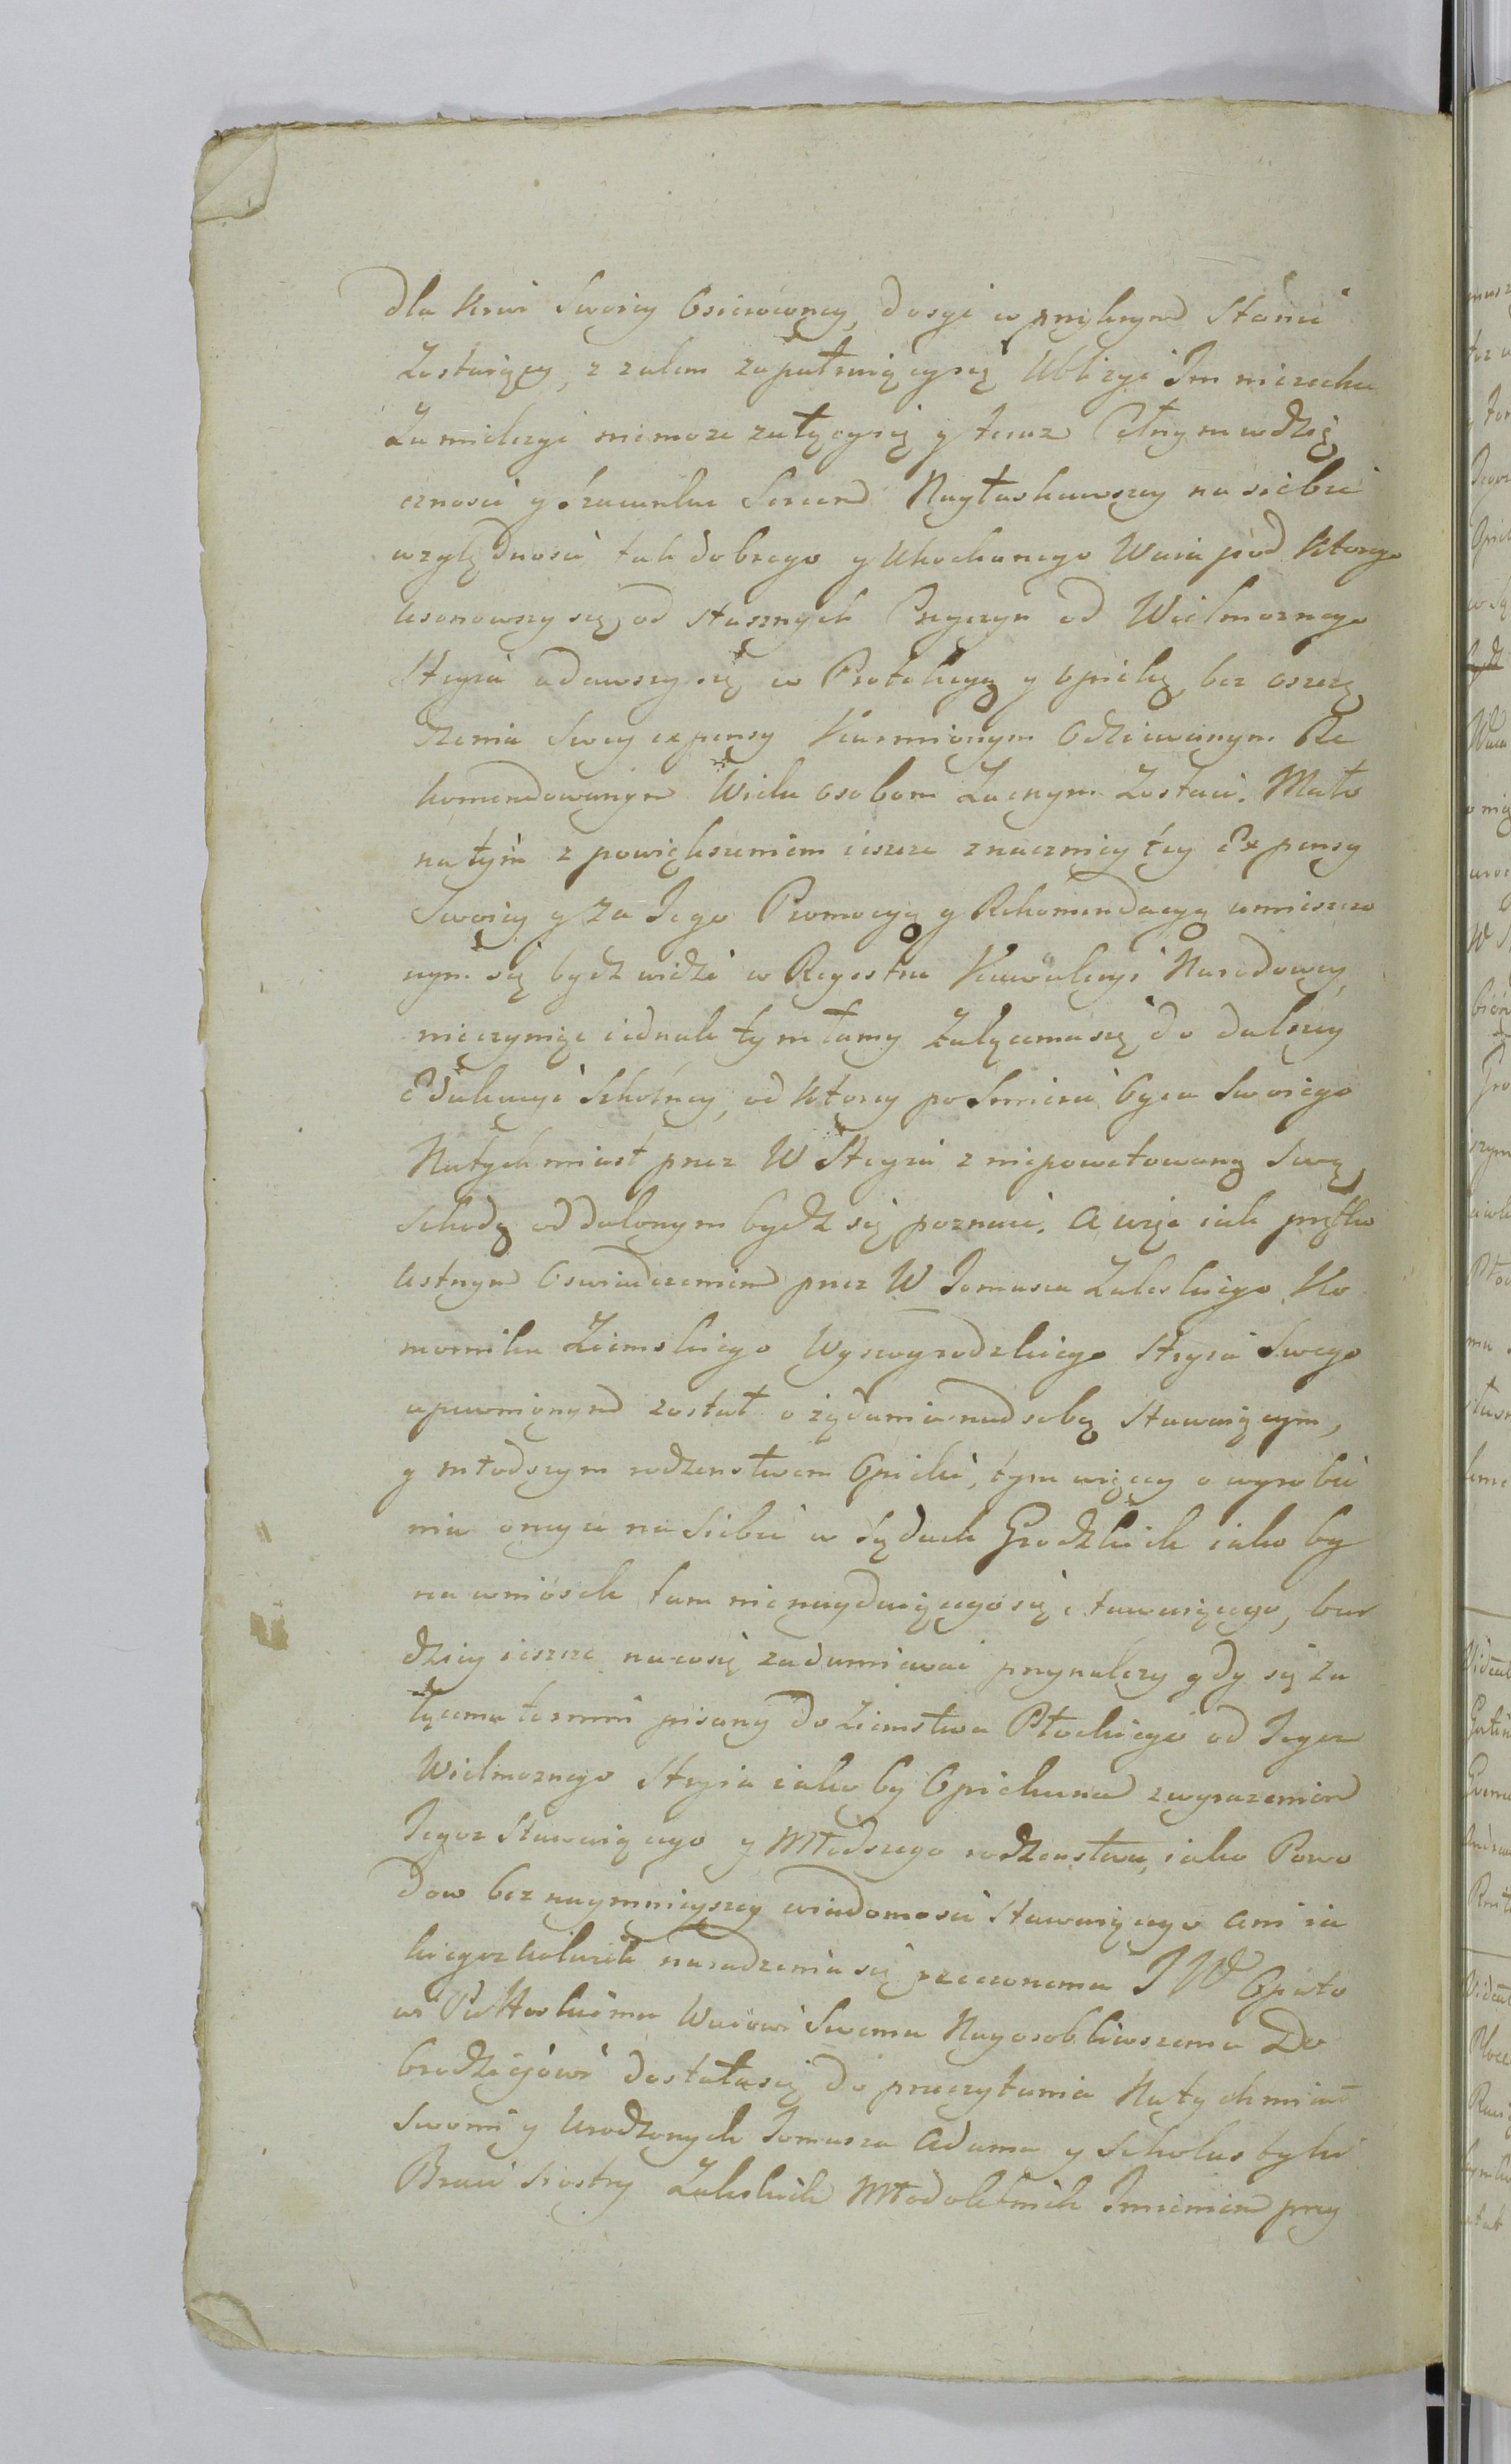 dla Krwi Swoiey Osierociałey, dosyć w przykrym Stanie
Zostaiący, z zalem zapatruiącysię Ubliżyć Im nizechce
Zamilczyć niemoze załącysię y teraz Pełnym wdzię
cznosci y szacunku Sercem Nayłaskawszey na siebie
względnosci tak dobrego y Ukochanego Wuia pod Ktorego
usunowszy się od słusznych Przyczyn od Wielmoznego
Stryia udawszy się w Protekcyą y opiekę bez oszczę
dzenia Swey expensy Karmionym Odziewanym Re
komendowanym Wielu osobom Zacnym Zostaie. Mało
natym z powiększeniem ieszcze znaczniey tey Expensy
Swoiey y za Jego Promocyą y Rekomendacyą umieszczo
nym się bydz widzi w Regestrze Kawaleryi Narodowey,
nieczyniąc iednak tym tamy Załącemusię do dalszey
Edukacyi Szkolney, od Ktorey poSmierci Oyca Swoiego
Natychmiast przez W Stryia z niepowetowaną Swą
Szkodą oddalonym bydz się poznaie. A więc iak prętko
Ustnym Oswiadczeniem przez W Tomasza Zaleskiego Ko
mornika Ziemskiego Wyszogrodzkiego Stryia Swego
upewnionym został o żądaniu nad sobą Stawaiącym,
y młodszym rodzenstwem Opieki, tym więcey o wyrobie
niu oneyze na Siebie w Sądach Grodzkich iako by
na wniosek tam nieznayduiącego się Stawaiącego, bar
dziey ieszcze nacosię zadumiewac przynalezy gdy się za
łącemu termin pisany do Ziemstwa Płockiego od Tegoz
Wielmoznego Stryia iako by Opiekuna z wyrazeniem
Tegoz Stawaiącego y Młodszego rodzenstwa, iako Powo
dow bez naymnieyszey wiadomosci Stawaiącego ani ia
kiegozkolwiek naradzenia się przeciwnemu JW Opato
wi Wuiowi Swemu Nayosobliwszemu Do
brodzieiowi dostałasię do przeczytania Natychmiast
Swoim y Urodzonych Tomasza Adama y Scholastyki
Braci Siostry Zaleskich Młodoletnich Imieniem przy